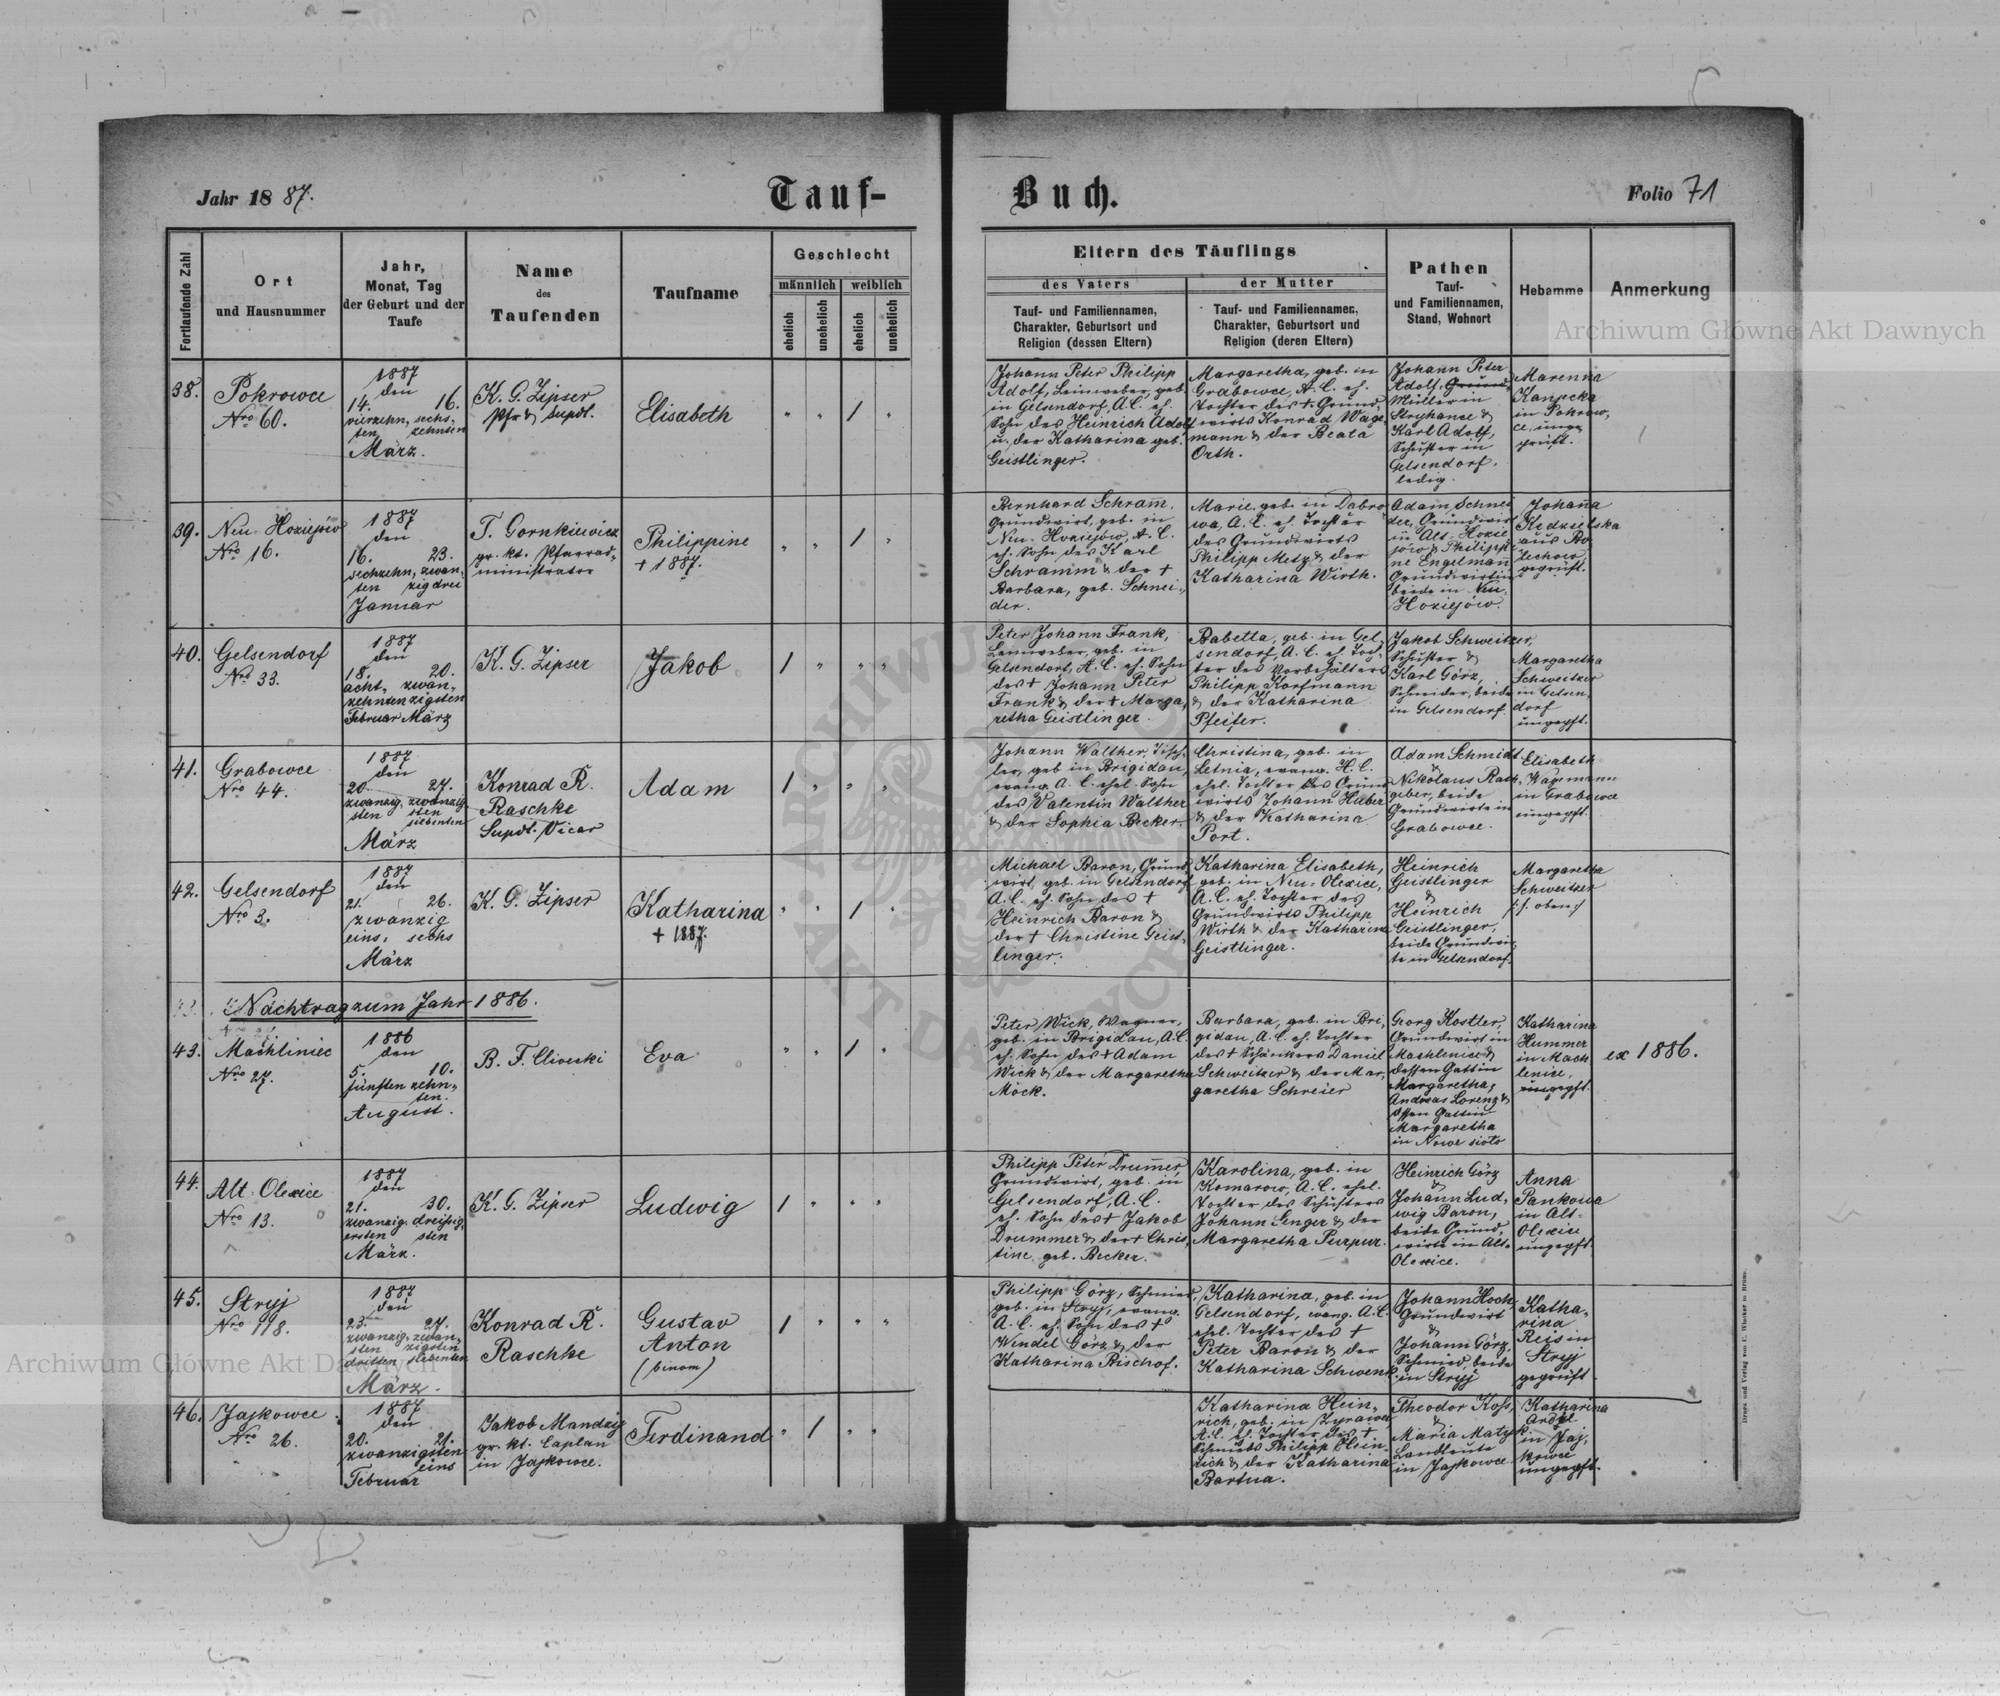 Jahr 1887.
Tauf-
Buch.
Folio 71
Fortlaufende Zahl
Ort
und Hausnummer
Jahr,
Monat, Tag
der Geburt und der
Taufe
Name
des
Taufenden
Taufname
Geschlecht
männlich
weiblich
ehelich
unehelich
ehelich
unehelich
Eltern des Täuflings
des Vaters
der Mutter
Tauf- und Familiennamen,
Charakter, Geburtsort und
Religion (dessen Eltern)
Tauf- und Familiennamen,
Charakter, Geburtsort und
Religion (deren Eltern)
Pathen
Tauf-
und Familiennamen,
Stand, Wohnort
Hebamme
Anmerkung
38.
Pokrowce
Nro 60.
1887
den
14. 16.
vierzehn, sechs,
ten zehnten
März.
K. G. Zipser
Pfr & Supdt.
Elisabeth
" " 1 "
Johann Peter Philipp
Adolf, Leinweber, geb.
in Gelsendorf, A.C. eh.
Sohn des Heinrich Adolf
u. der Katharina geb.
Geistlinger.
Margaretha, geb. in
Grabowce, A.C. eh.
Tochter des + Grund,
wirts Konrad Wage
mann & der Beata
Orth.
Johann Peter
Adolf,
Müller in
Stryhance &
Karl Adolf,
Schuster in
Gelsendorf.
ledig.
Marenna
Kanycka
in Pokrow,
ce, unge
prüft.
39.
Neu-Hoziejów
Nro 16.
1887
den
16. 23.
sechzehn, zwan,
ten zig drei
Januar
T. Gornkiewicz
gr. kt. Pfarrad,
ministrator
Philippine
+ 1887.
" " 1 "
Bernhard Schram̄,
Grundwirt, geb. in
Neu-Hoziejów, A.C.
eh. Sohn des Karl
Schramm & der +
Barbara, geb. Schnei,
der.
Marie geb. in Dabro
wa, A.C. eh. Tochter
des Grundwirts
Philipp Metz & der
Katharina Wirth.
Adam Schnei
der, Grundwirt
in Alt-Hozie
jów & Philippi
ne Engelman
Grundwirtin
beide in Neu-
Hoziejów.
Johan̄a
Kedzielska
aus Bo
lechow
geprüft.
40.
Gelsendorf
Nro 33.
1887
den
18. 20.
acht, zwan,
zehnten zigsten
Februar März
K. G. Zipser
Jakob
1 " " "
Peter Johann Frank,
Leinweber, geb. in
Gelsendorf, A.C. eh. Sohn
des + Johann Peter
Frank & der + Marga,
retha Geistlinger.
Babetta, geb. in Gel,
sendorf, A.C. eh. Toch,
ter des Vorbehälters
Philipp Korfmann
& der Katharina
Pfeifer.
Jakob Schweitzer,
Schuster &
Karl Görz,
Schneider, beide
in Gelsendorf.
Margaretha
Schweitzer
in Gelsen,
dorf
ungepft.
41.
Grabowce
Nro 44.
1887
den
20. 27.
zwanzig, zwanzig,
sten sten
siebenten
März
Konrad R.
Raschke
Supdt. Vicar
Adam
1 " " "
Johann Walther, Tisch,
ler, geb in Brigidau,
evang. A.C. ehel. Sohn
des Valentin Walther
& der Sophia Becker.
Christina, geb. in
Letnia, evang. H.C.
ehel. Tochter des Grund
wirts Johann Huber
& der Katharina
Port.
Adam Schmidt
&
Nikolaus Rath,
geber, beide
Grundwirte in
Grabowce.
Elisabeth
Wagemann
in Grabowce
ungepft.
42.
Gelsendorf
Nro 3.
1887
den
21. 26.
zwanzig
eins, sechs
März
K. G. Zipser
Katharina
+ 1887.
" " 1 "
Michael Baron, Grund,
wirt, geb. in Gelsendorf
A.C. eh. Sohn des +
Heinrich Baron &
der + Christine Geist,
linger.
Katharina Elisabeth,
geb. in Neu-Olexice,
A.C. eh. Tochter des
Grundwirts Philipp
Wirth & der Katharina
Geistlinger.
Heinrich
Geistlinger
&
Heinrich
Geistlinger,
beide Grundwir,
te in Gelsendorf.
Margaretha
Schweitzer
/:s. oben:/
Nachtrag zum Jahr 1886.
43.
Machliniec
Nro 27.
1886
den
5. 10.
fünften zehn,
ten.
August.
Eva
" " 1 "
Peter Wick, Wagner,
geb. in Brigidau, A.C.
eh. Sohn des + Adam
Wick & der Margaretha
Möck.
Barbara, geb. in Bri,
gidau, A.C. eh. Tochter
des + Schänkers Daniel
Schweitzer & der Mar,
garetha Schreier
Georg Kostler,
Grundwirt in
Machlenice &
dessen Gattin
Margaretha,
Andreas Lorenz &
dssen Gattin
Margaretha
in Nowe sioto
Katharina
Hummer
in Mach
lenice,
ungepft.
ex 1886.
44.
Alt-Olexice
Nro 13.
1887
den
21. 30.
zwanzig, dreissig,
ersten sten
März.
K. G. Zipser
Ludwig
1 " " "
Philipp Peter Drum̄er,
Grundwirt, geb. in
Gelsendorf, A.C.
eh. Sohn des + Jakob
Drummer & der + Chris,
tine, geb. Becker.
Karolina, geb. in
Komarow, A.C. ehel.
Tochter des Schusters
Johann Senger & der
Margaretha Purpur.
Heinrich Görz
&
Johann Lud,
wig Baron,
beide Grund,
wirte in Alt-
Olexice.
Anna
Pankowa
in Alt-
Olexice
ungepft.
45.
Stryj
Nro 118.
1887
den
23. 27.
zwanzig, zwan,
sten zigsten
dritten siebenten
März.
Konrad R.
Raschke
Gustav
Anton
(binom)
1 " " "
Philipp Görz, Schmied,
geb. in Stryj, evang.
A.C. eh. Sohn des +
Wendel Görz & der
Katharina Bischof.
Katharina, geb. in
Gelsendorf, evang. A.C.
ehel. Tochter des +
Peter Baron & der
Katharina Schwenk.
Johann Hoch
Grundwirt
&
Johann Görz,
Schmied, beide
in Stryj
Katha,
rina
Reis in
Stryj
geprüft
46.
Jajkowce
Nro 26.
1887
den
20. 21.
zwanzigsten
eins
Februar
Jakob Mandzig
gr. kt. Caplan
in Jajkowce.
Ferdinand
" 1 " "
Katharina Hein,
rich, geb. in Zyrawa
A.C. eh. Tochter des +
Schmieds Philipp Hein,
rich & der Katharina
Bartua.
Theodor Koss,
&
Maria Matyk
Landleute
in Jajkowce
Katharina
in Jaj,
kowce
ungepft.
Druck und Verlag von C. Winiker in Brünn.
Archiwum Główne Akt Dawnych
Archiwum Główne Akt Dawnych